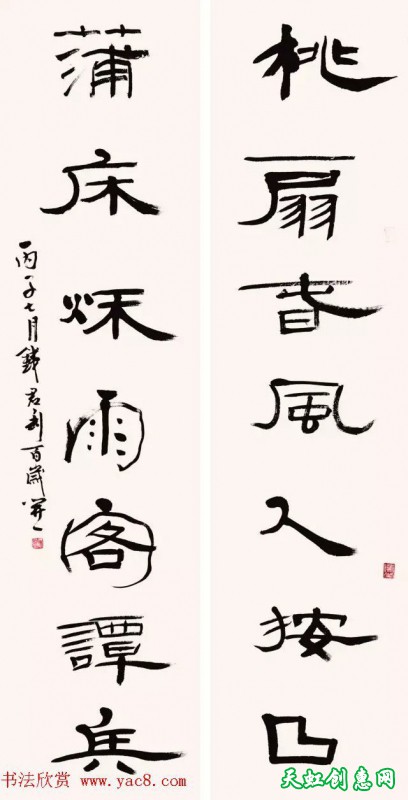 桃扇春風人按曲
蒲床秌雨客譚兵
丙子七月錢君匋百歲開一
书法欣赏 www.yac8.com
天虹创惠网